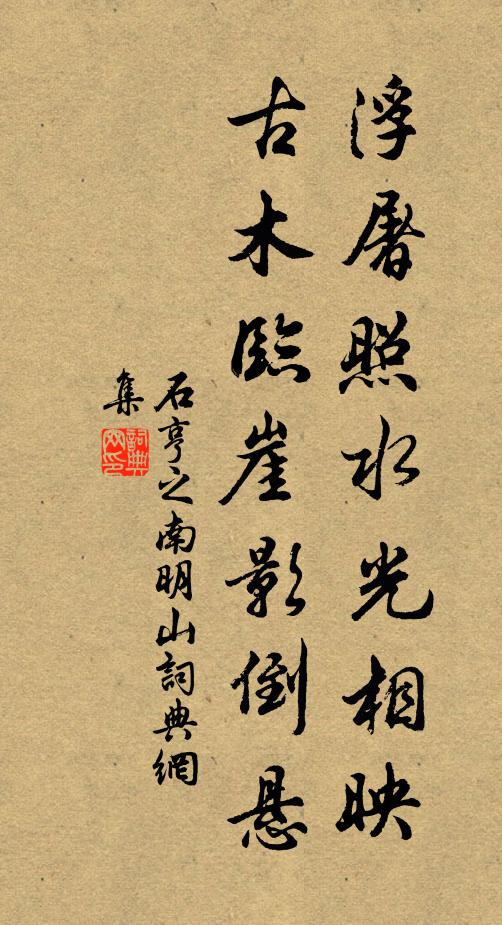 浮屠照水光相映
古木臨崖影倒懸
石亨之南明山詞典網
集
詞典
网印